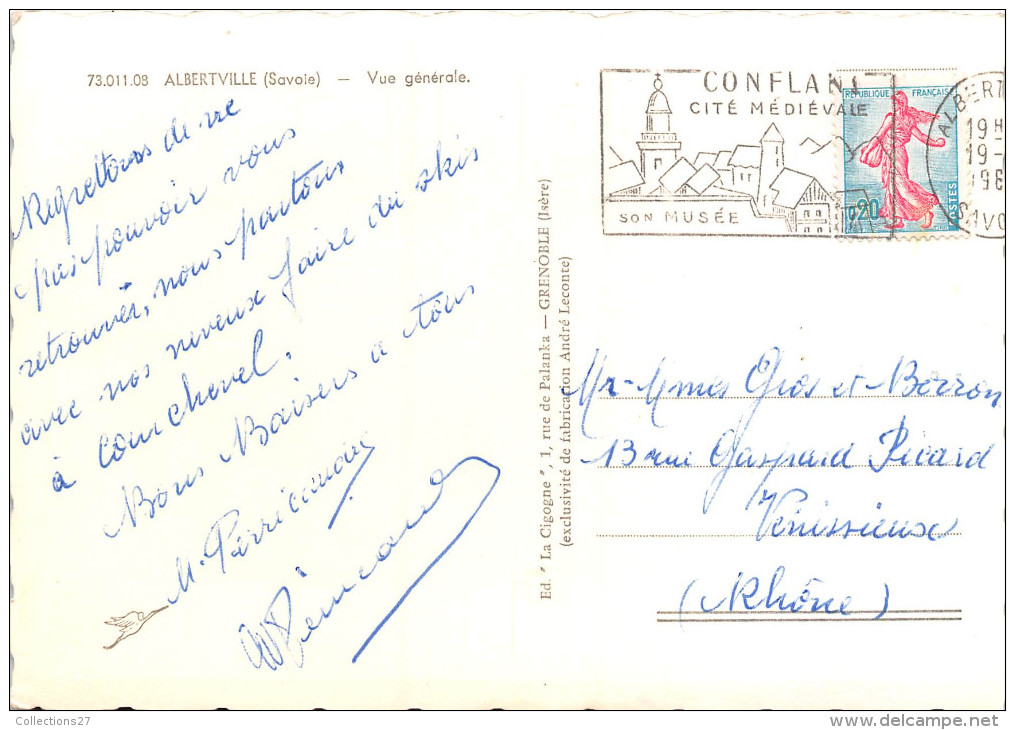 73.011.08 ALBERTVILLE (Savoie) — Vue générale.
Regrettons de ne
pas pouvoir vous
retrouver, nous partons
avec nos neveux faire du skis
à Courchevel.
Bons Baisers a tous
M.
CONFLANS
CITÉ MÉDIÉVALE
SON MUSÉE
RÉPUBLIQUE FRANÇAISE
0,20
POSTES
ALBERT
19 H
19 -
196
Ed. " La Cigogne ", 1, rue de Palanka — GRENOBLE (Isère)
(exclusivité de fabrication André Leconte)
Mr-Mmes Gros et Berron
13 rue Gaspard Picard
Vénissieux
(Rhône)
Collections27
delcampe.net